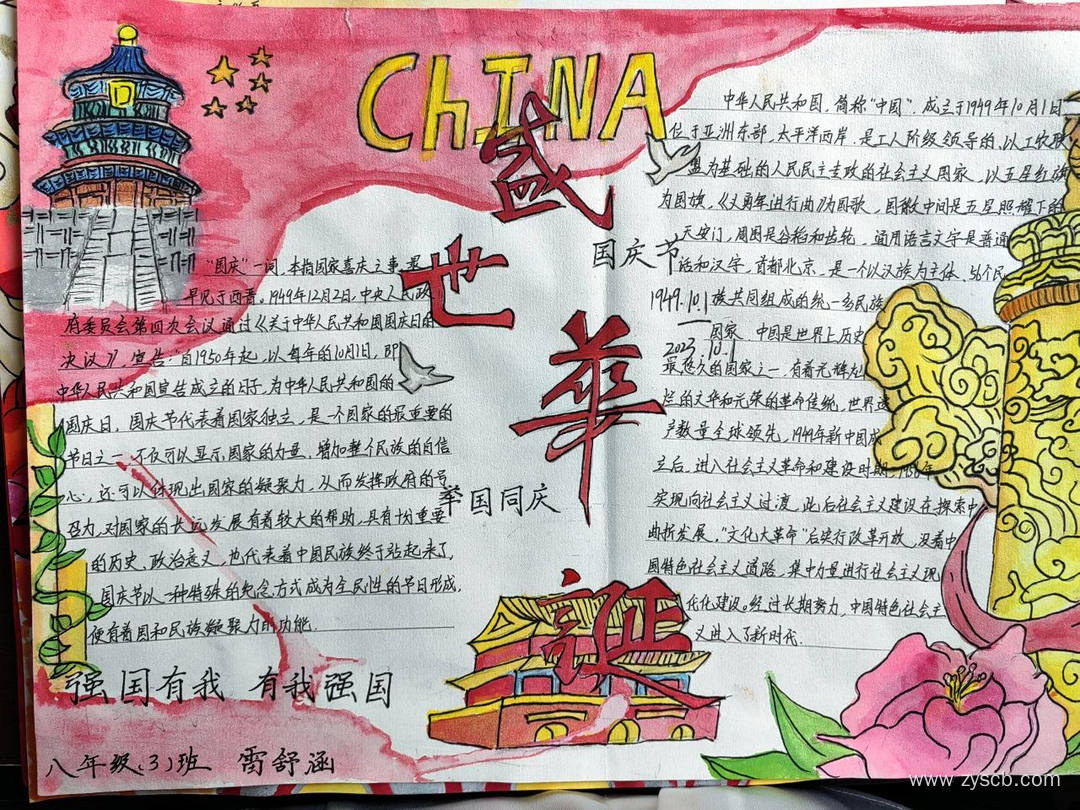 CHINA
盛
世
華
誕
国庆节
1949.10.1
—
2023.10.1
举国同庆
"国庆"一词,本指国家喜庆之事,最
早见于西晋。1949年12月2日,中央人民政
府委员会第四次会议通过《关于中华人民共和国国庆日的
决议》,宣告:"自1950年起,以每年的10月1日,即
中华人民共和国宣告成立的日子,为中华人民共和国的
国庆日,国庆节代表着国家独立,是一个国家的最重要的
节日之一,不仅可以显示国家的力量,增加整个民族的自信
心,还可以体现出国家的凝聚力,从而发挥政府的号
召力,对国家的长远发展有着较大的帮助,具有十分重要
的历史,政治意义,也代表着中国民族终于站起来了,
国庆节以一种特殊的纪念方式成为全民性的节日形成,
便有着国和民族凝聚力的功能.
强国有我 有我强国
八年级(3)班 雷舒涵
中华人民共和国,简称"中国",成立于1949年10月1日
位于亚洲东部,太平洋西岸,是工人阶级领导的,以工农联
盟为基础的人民民主专政的社会主义国家,以五星红旗
为国旗,《义勇军进行曲》为国歌,国徽中间是五星照耀下的
天安门,周围是谷稻和齿轮,通用语言文字是普通
话和汉字,首都北京,是一个以汉族为主体、56个民
族共同组成的统一多民族
国家.中国是世界上历史
最悠久的国家之一,有着光辉灿
烂的文华和光荣的革命传统,世界遗
产数量全球领先,1949年新中国成
立后,进入社会主义革命和建设时期,1956年
实现向社会主义过渡,此后社会主义建设在探索中
曲折发展,"文化大革命"后实行改革开放,沿着中
国特色社会主义道路,集中力量进行社会主义现
代化建设。经过长期努力,中国特色社会主
义进入了新时代.
www.zyscb.com